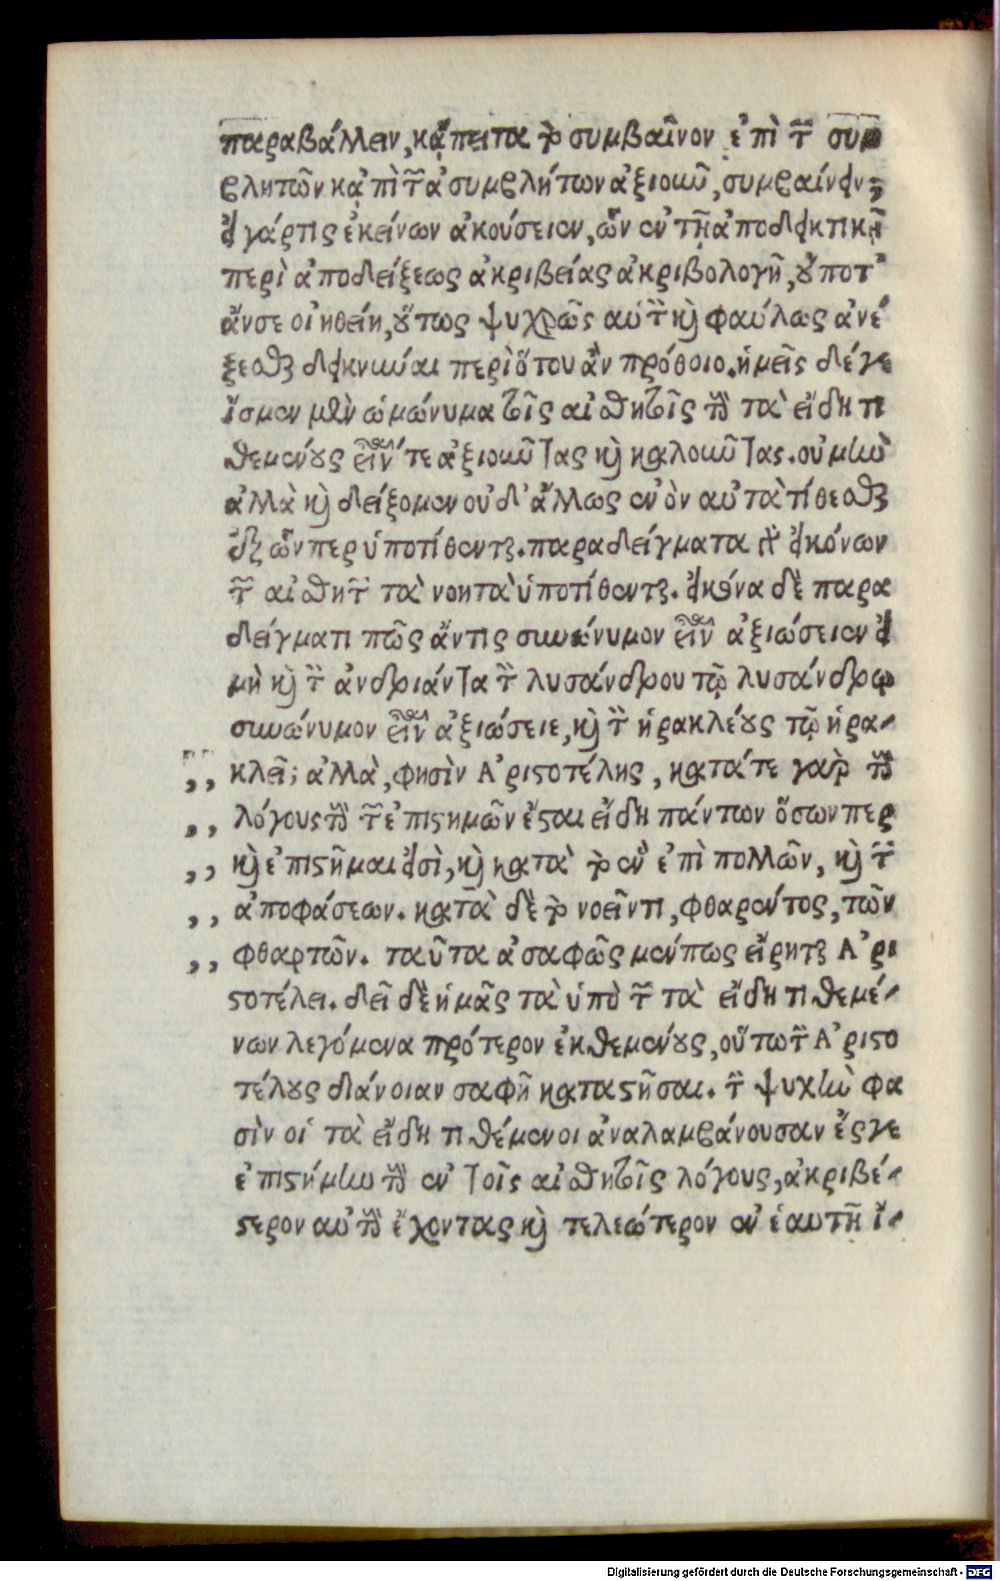 παραβάλλειν, κἄπειτα τὸ συμβαῖνον ἐπὶ τῶν συμ
βλητῶν κἀπὶ τῶν ἀσυμβλήτων ἀξιοῦν, συμβαίνειν;
εἰ γάρ τις ἐκείνων ἀκούσειεν, ὧν ἐν τῇ ἀποδεικτικῇ
περὶ ἀποδείξεως ἀκριβείας ἀκριβολογῇ, οὔποτ'
ἄν σε οἰηθείη, οὕτως ψυχρῶς αὐτὸν καὶ φαύλως ἀνέ
ξεσθαι δεικνύναι περὶ ὅτου ἂν πρόθοιο. ἡμεῖς δέ γε
ἴσμεν μὲν ὁμώνυμα τοῖς αἰσθητοῖς τοὺς τὰ εἴδη τι
θεμένους εἶναί τε ἀξιοῦντας καὶ καλοῦντας. οὐ μὴν
ἀλλὰ καὶ δείξομεν οὐδ' ἄλλως ἐνὸν αὐτὰ τίθεσθαι
ἐξ ὧνπερ ὑποτίθενται. παραδείγματα γὰρ εἰκόνων
τῶν αἰσθητῶν τὰ νοητὰ ὑποτίθενται. εἰκόνα δὲ παρα
δείγματι πῶς ἄν τις συνώνυμον εἶναι ἀξιώσειεν εἰ
μὴ καὶ τὸν ἀνδριάντα τὸν λυσάνδρου τῷ λυσάνδρῳ
συνώνυμον εἶναι ἀξιώσειε, καὶ τὸν ἡρακλέους τῷ ἡρα-
,, κλεῖ; ἀλλὰ, φησὶν Ἀριστοτέλης, κατά τε γὰρ τοὺς
,, λόγους τοὺς τῶν ἐπιστημῶν ἔσται εἴδη πάντων ὅσωνπερ
,, καὶ ἐπιστῆμαι εἰσὶ, καὶ κατὰ τὸ ἓν ἐπὶ πολλῶν, καὶ τῶν
,, ἀποφάσεων. κατὰ δὲ τὸ νοεῖν τι, φθαρέντος, τῶν
,, φθαρτῶν. ταῦτα ἀσαφῶς μέν πως εἴρηται Ἀρι
στοτέλει. δεῖ δὲ ἡμᾶς τὰ ὑπὸ τῶν τὰ εἴδη τιθεμέ-
νων λεγόμενα πρότερον ἐκθεμένους, οὕτω τὴν Ἀριστο
τέλους διάνοιαν σαφῆ καταστῆσαι. τὴν ψυχὴν φα
σὶν οἱ τὰ εἴδη τιθέμενοι ἀναλαμβάνουσαν ἔς γε
ἐπιστήμην τοὺς ἐν τοῖς αἰσθητοῖς λόγους, ἀκριβέ-
στερον αὐτοὺς ἔχοντας καὶ τελεώτερον ἐν ἑαυτῇ ἴ-
Digitalisierung gefördert durch die Deutsche Forschungsgemeinschaft - DFG